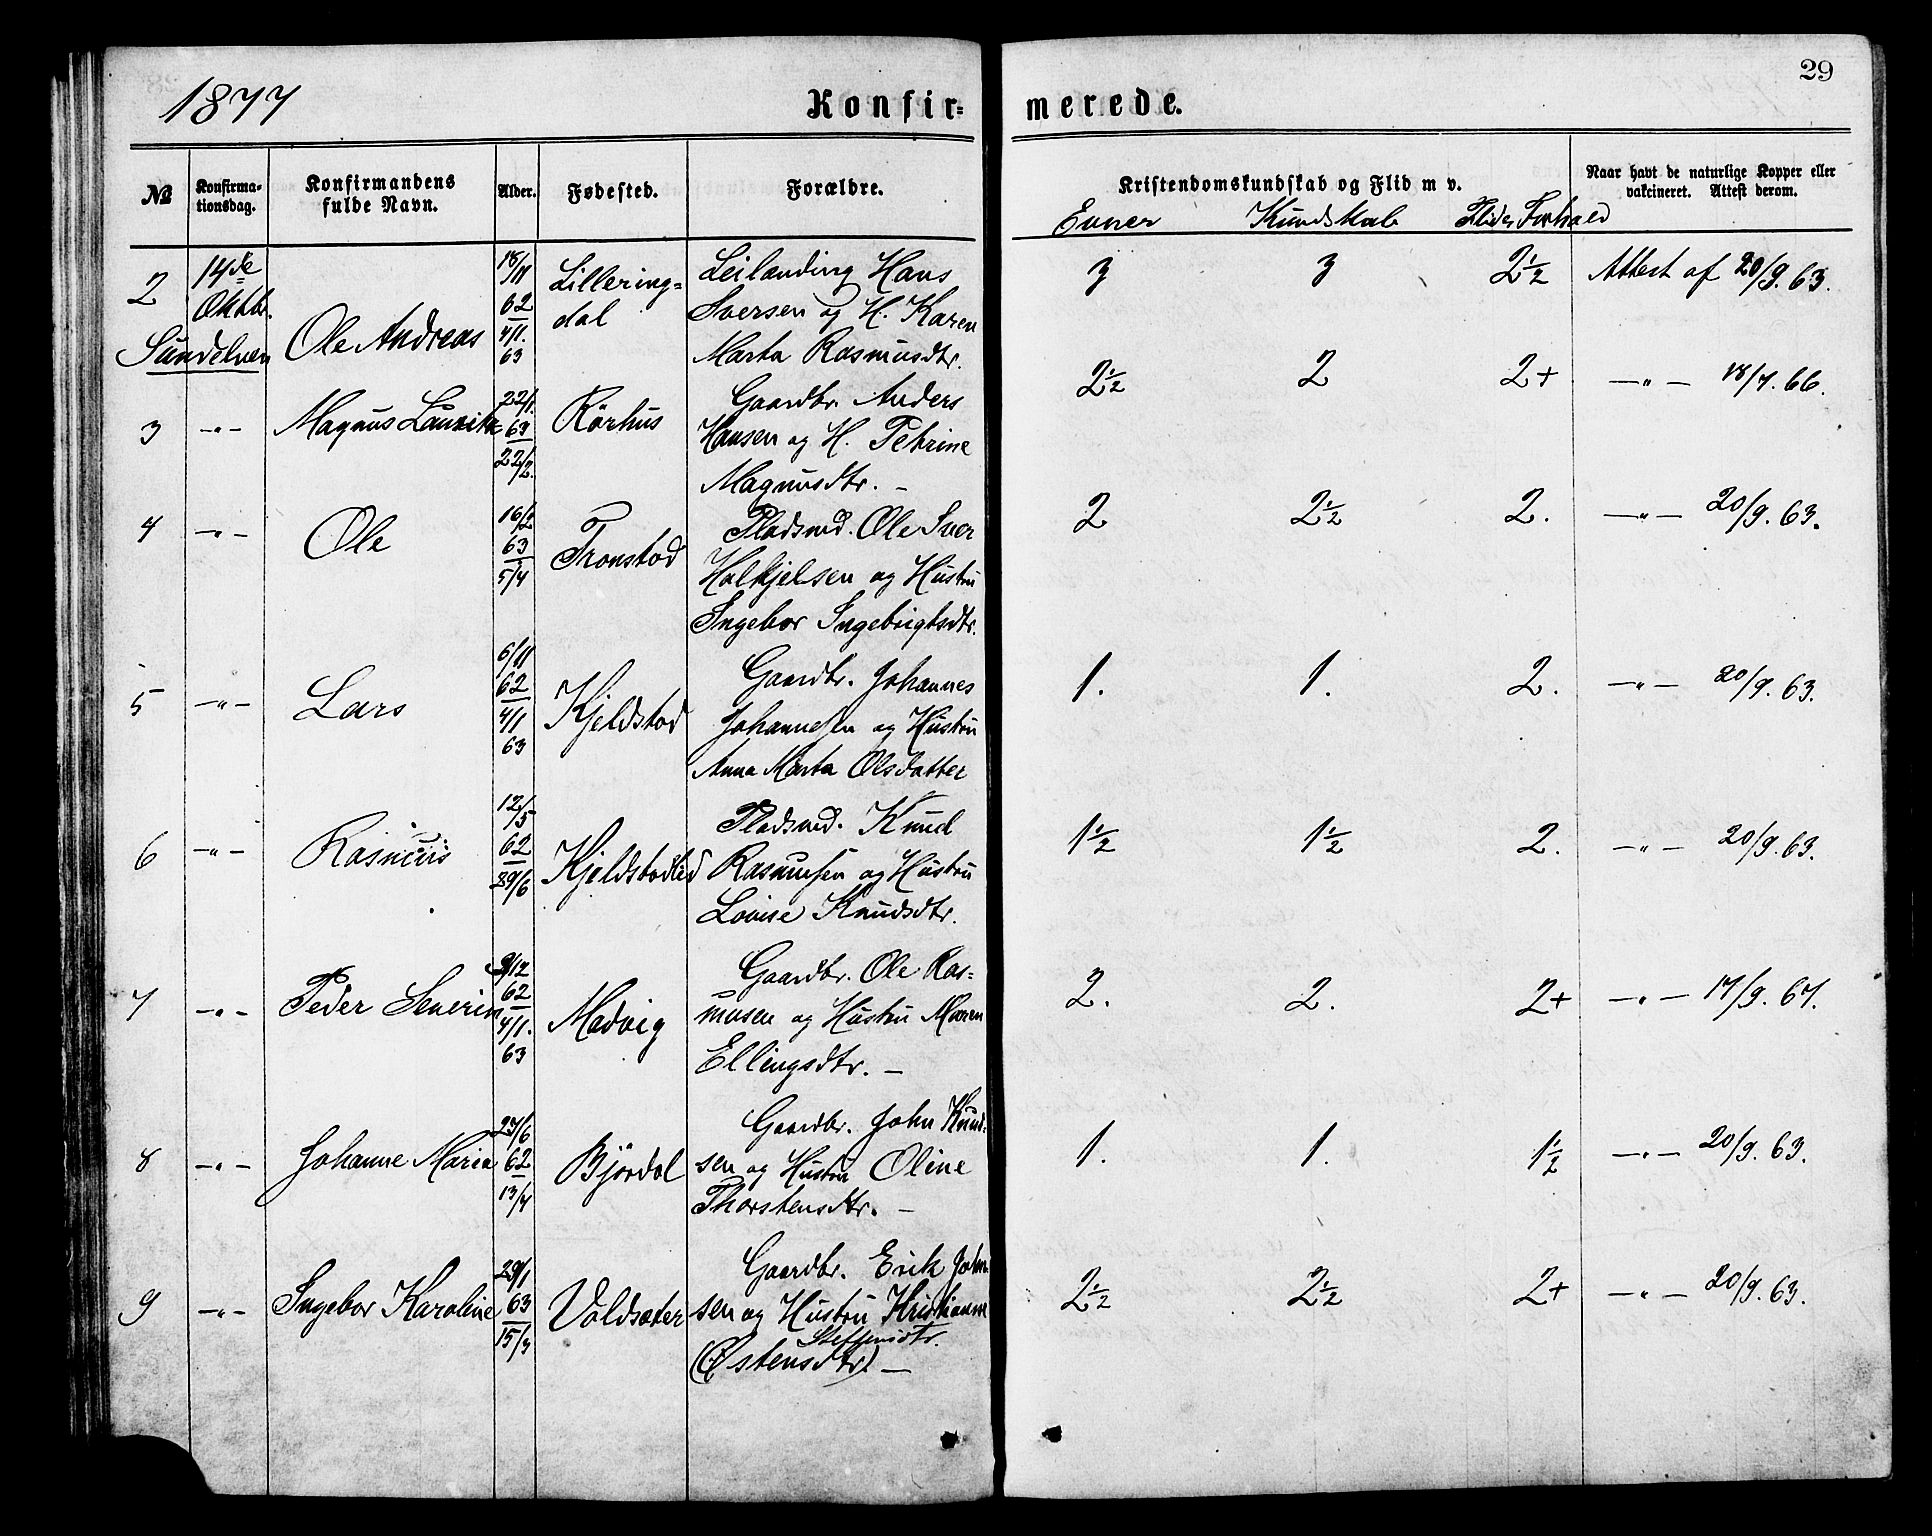 1877 Konfir- merede. 29
№ Konfirmationsdag. Konfirmandens fulde Navn. Alder. Fødested. Forældre. Kristendomskundskab og Flid m v. Naar havt de naturlige Kopper eller vakcineret. Attest derom.
Evner Kundskab Flid og Forhold
2 14de Oktbr. 18/11 Lillering- Leilænding Hans 3 3 2½ Attest af 20/9. 63.
62 dal Iversen og H. Karen
Sundelven Ole Andreas 4/1. 63 Marta Rasmusdtr.
3 -"- Magnus Lauritz 22/1. 63 22/2. Rørhus Gaardbr. Anders 2½ 2 2+ -"- 18/7. 66.
Hansen og H. Petrine
Magnusdtr. -
4 -"- Ole 16/2 63 5/4 Tronstad Pladsmd. Ole Iver 2 2½ 2. -"- 20/9. 63.
Halkjelsen og Hustru
Ingebor Ingebrigtsdtr.
5 -"- Lars 6/11 62 4/1 63 Kjeldstad Gaardbr. Johannes 1. 1. 2. -"- 20/9. 63.
Johannessen og Hustru
Anna Marta Olsdatter
6 -"- Rasmus 12/5 62 29/6 Kjeldstadlid Pladsmd. Knud 1½ 1½ 2. -"- 20/9. 63.
Rasmussen og Hustru
Lovise Knudsdtr.
7 -"- Peder Severin 9/12 62 4/1. 63 Madvig Gaardbr. Ole Ras- 2. 2. 2+ -"- 17/9. 67.
musen og Hustru Maren
Ellingsdtr. -
8 -"- Johanne Maria 24/6 62 13/7 Bjørdal Gaardbr. John Knud- 1. 1. 1½ -"- 20/9. 63.
sen og Hustru Oline
Thorstensdtr. -
9 -"- Ingebor Karoline 29/1 63 15/3 Valdsæter Gaardbr. Erik John- 2½ 2½ 2+ -"- 20/9. 63.
sen og Hustru Kristianne
Steffensdtr.
(Østensdtr.) -